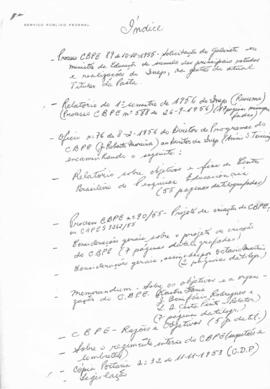 SERVIÇO PÚBLICO FEDERAL
Índice
- Processo CBPE 89 de 10-11-1955 - Solicitação do Gabinete do
ministro da Educação de resumo dos principais estudos
e realizações do Inep, na gestão do atual
Titular da Pasta
- Relatório do 1º semestre de 1956 do Inep (Resumo)
(Processo CBPE nº 588 de 26-9-1956)
- Ofício nº 76 de 8-2-1956 do Diretor de Programas do
CBPE (J. Roberto Moreira) ao Diretor do Inep
encaminhando o seguinte:
- Relatório sobre objetivos e fins do Centro
Brasileiro de Pesquisas Educacionais
(55 páginas datilografadas)
- Processo CBPE nº 90/55 - Projeto de criação do CBPE,
- Considerações gerais sobre o projeto de criação
do CBPE (7 páginas datilografadas)
- Considerações gerais,
(2 páginas datilogr.)
- Memorandum - Sobre os objetivos e a organi-
zação do C.B.P.E.
Bonifácio Rodrigues e
L. A. Costa Pinto
(7 páginas datilogr.)
- C B P E - Razões e Objetivos (5 p. dt.)
- Sobre o regimento interno do CBPE
- Cópia Portaria nº 32 de 11-11-1953 (C.D.P)
- Legislação